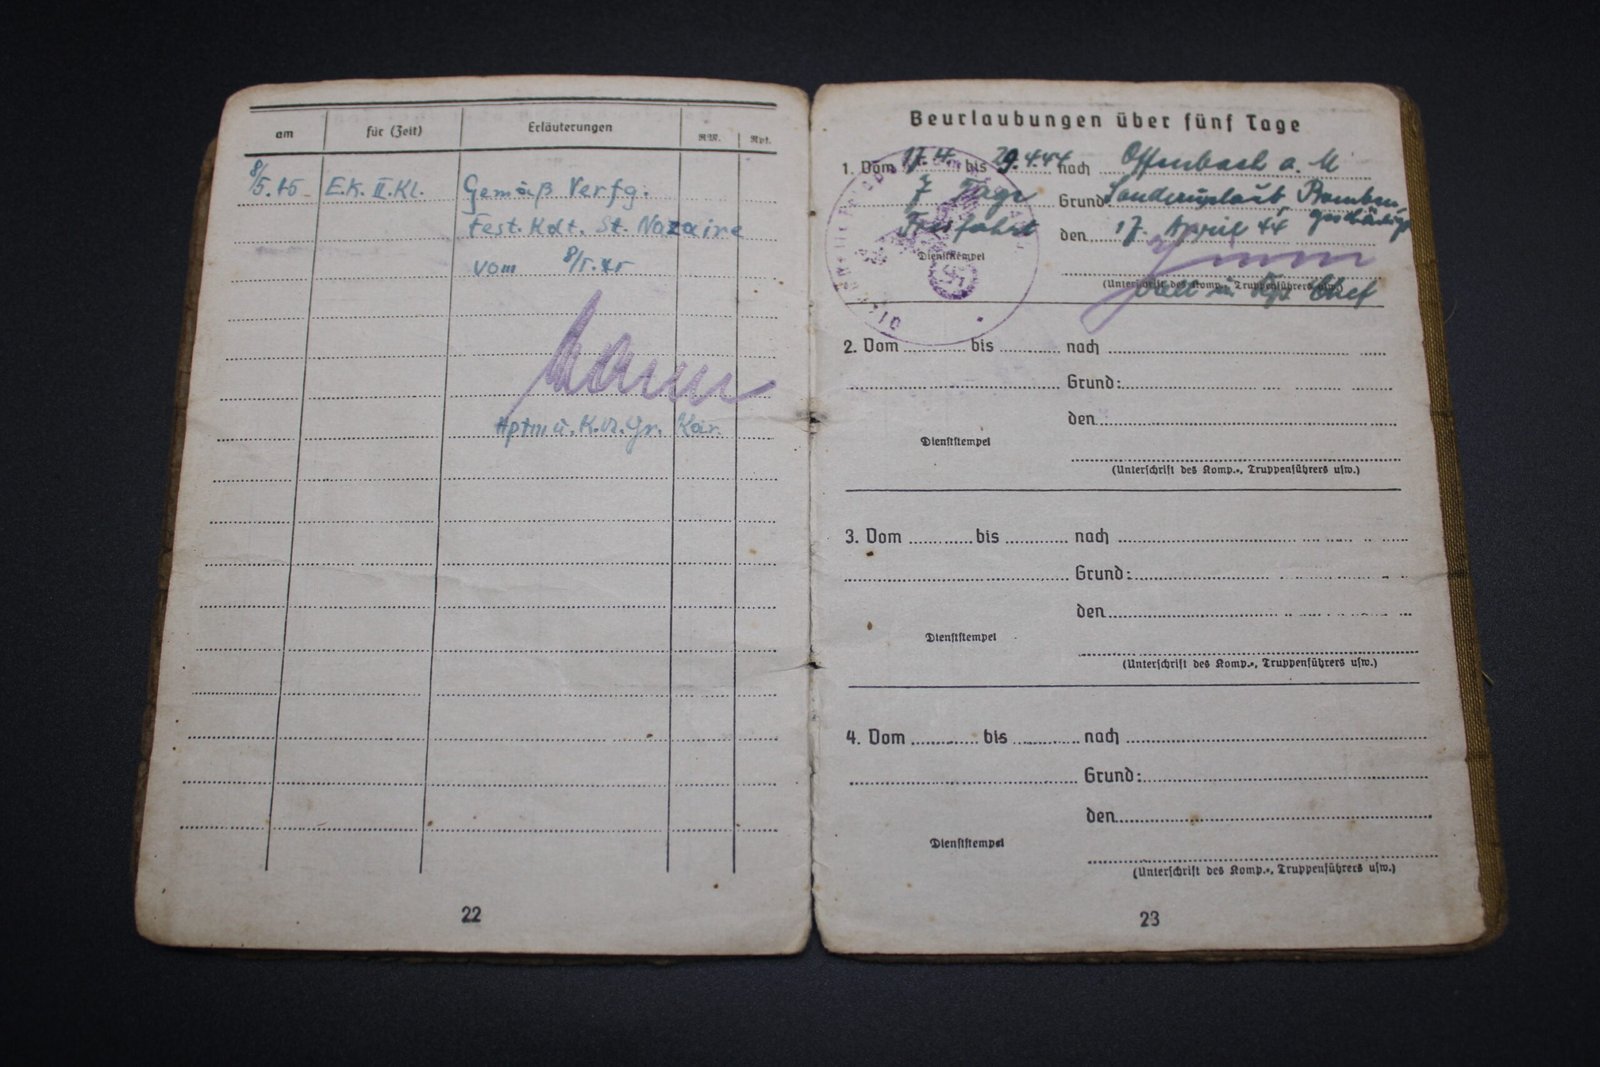 am für (Zeit) Erläuterungen R.W. Rpt.
8/5.45 E.K. II. Kl. Gemäß Verfg.
Fest. Kdt. St. Nazaire
vom 8/5.45
Hptm u. K.
22
Beurlaubungen über fünf Tage
1. Vom 17.4. bis 29.4.44 nach Offenbach a. M
7 Tage Grund: Sonderurlaub Bomben
Freifahrt den 17. April 44 geschädigt
Dienststempel
(Unterschrift des Komp.-, Truppenführers usw.)
2. Vom bis nach
Grund:
den
Dienststempel
(Unterschrift des Komp.-, Truppenführers usw.)
3. Vom bis nach
Grund:
den
Dienststempel
(Unterschrift des Komp.-, Truppenführers usw.)
4. Vom bis nach
Grund:
den
Dienststempel
(Unterschrift des Komp.-, Truppenführers usw.)
23